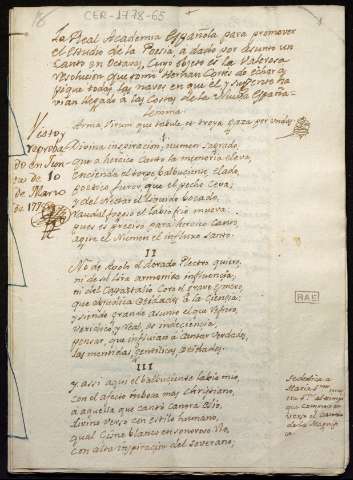 CER-1778-65
La Real Academia Española, para promover
el Estudio de la Poesia, a dado por asunto un
Canto en Octavas, cuyo objeto es la Valerosa
resolucion que tomó Hernan Cortes de echar a
pique todas las naves en que el y su gente ha
vian llegado a las Costas de la Nueva España
Lemma:
Visto y
reproba
do en Jun
ta de 10
de Marzo
de 1778
I
Divina inspiracion, numen sagrado,
que a heroico Canto la memoria eleva,
Encienda el torpe balbuciente, elado,
poetico furor que el pecho ceva;
y del Nectar el liquido bocado,
raudal facil el labio frio mueva:
pues es preciso para heroico Canto,
agite el Numen el influxo santo.
II
No de Apolo el dorado Plectro quiero,
ni de su Lira armonica influencia,
ni del Castalio Coro el
que a la Ciencia:
y siendo grande asunto el que refiero,
Veridico y Real, es indecencia,
pensar, que influiran a Cantar verdades,
las mentidas gentilicas Deidades.
RAE
III
y assi aquel balbuciente labio mio,
con el afecto
a aquella que cantó
divino verso en estilo humano,
qual Cisne blanco en sonoroso Rio,
con alta inspiracion del soverano;
Se dedica a
Maria SSma
en el
que
verso el Cantico
de la Magnifi
ca